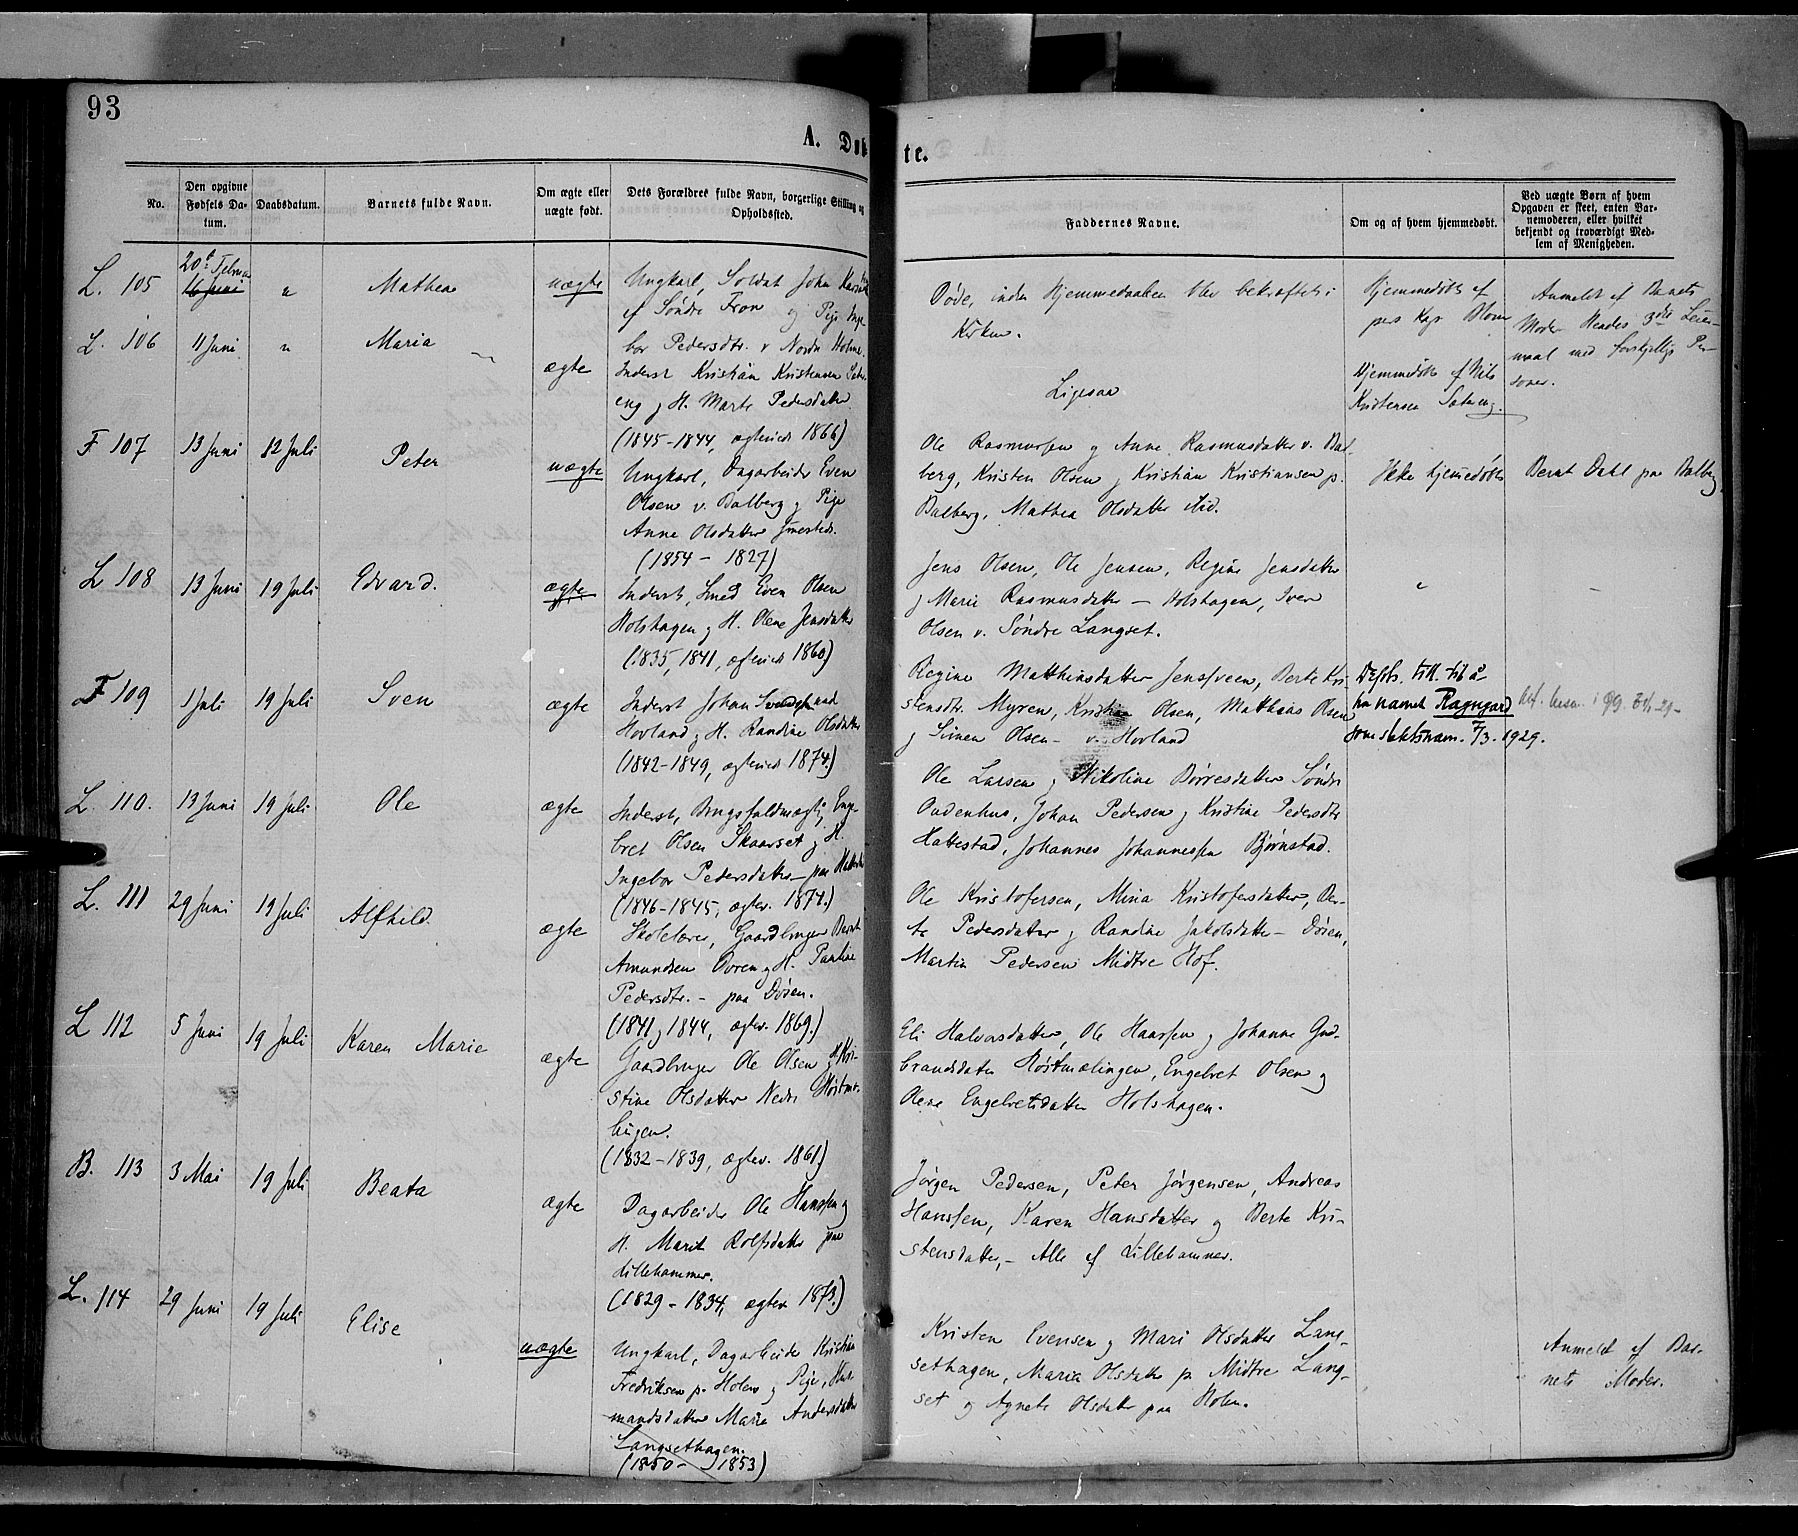 93
A. Døb
te.
No.
Den opgivne Fødsels Datum.
Daabsdatum.
Barnets fulde Navn.
Om ægte eller uægte født.
Dets Forældres fulde Navn, borgerlige Stilling og Opholdssted.
Faddernes Navne.
Om og af hvem hjemmedøbt.
Ved uægte Børn af hvem Opgaven er skeet, enten Barnemoderen, eller hvilket bekjendt og troværdigt Medlem af Menigheden.
L. 105
16 Juni
"
Mathea
uægte
Ungkarl, Soldat Johan
af Søndre Fron og Pige Inge-
bor Pedersdtr. v Nordre Holme.
Døde, inden Hjemmedaaben blev bekræftet i
Kirken.
Hjemmedøbt af
pers Kap Blom
Anmeldt af Barnets
Moder Hendes 3die Leier-
maal med forskjellige Per-
soner.
L. 106
11 Juni
"
Maria
ægte
Inderst Kristian Kristensen Sæter-
eng og H. Marte Pedersdatter
(1845-1844, ægteviet 1866)
Ligesaa
Hjemmedøbt af Nils
Kristensen Sætereng.
F 107
13 Juni
12 Juli
Peter
uægte
Ungkarl, Dagarbeider Even
Olsen v. Balberg og Pige
Anne Olsdatter
(1854 - 1827)
Ole Rasmussen og Anne Rasmusdatter v. Bal-
berg, Kristen Olsen og Kristian Kristiansen p.
Balberg, Mathea Olsdatter ibid.
Ikke hjemmedøbt
Bernt Dahl paa Balberg
L 108
13 Juni
19 Juli
Edvard.
ægte
Inderst, Smed Even Olsen
Holshagen og H. Olene Jensdatter
(1835, 1841, ægteviet 1860)
Jens Olsen, Ole Jensen, Regine Jensdatter
og Marie Rasmusdatter - Holshagen, Iver
Olsen v. Søndre Langset.
"
F 109
1 Juli
19 Juli
Sven
ægte
Inderst Johan
Hovland og H. Randine Olsdatter
(1842-1849, ægteviet 1874.)
Regine Matthiasdatter Jensveen, Berte Kri-
stensdtr. Myren, Kristian Olsen, Matthias Olsen
og Simen Olsen - v. Hovland
Depts. till. til å
ha navnet Ragngard
som slektsnavn. 7/3. 1929.
L. 110.
13 Juni
19 Juli
Ole
ægte
Inderst, Brugsfuldmægtig Enge-
bret Olsen Skaarset og H.
Ingebor Pedersdatter - paa
(1846-1845, ægtev. 1874.)
Ole Larsen og Nikoline Børresdatter Søndre
Oudenhus, Johan Pedersen og Kristine Pedersdtr
Hattestad, Johannes Johannessen Bjørnstad.
L. 111
29 Juni
19 Juli
Alfhild.
ægte
Skolelærer, Gaardbruger Bernt
Amundsen Doren og H. Pauline
Pedersdtr. - paa Døsen.
(1841 og 1844, ægtev. 1869.)
Ole Kristofersen, Mina Kristofersdatter, Ber-
te Pedersdatter og Randine Jakobsdatter - Døsen,
Martin Pedersen Midtre Hof.
L 112
5 Juni
19 Juli
Karen Marie
ægte
Gaardbruger Ole Olsen og H. Kri-
stine Olsdatter Nedre Høistmæ-
lingen.
(1832-1839, ægtev. 1861.)
Eli Halvorsdatter, Ole Hanssen og Johanne Gud-
brandsdatter Høistmælingen, Engebret Olsen og
Olene Engebretsdatter Holshagen.
B. 113
3 Mai
19 Juli
Beata
ægte
Dagarbeider Ole Hanssen og
H. Marit Rolfsdatter paa
Lillehammer.
(1829 - 1834, ægtev 1873.)
Jørgen Pedersen, Peter Jørgensen, Andreas
Hanssen, Karen Hansdatter og Berte Kri-
stensdatter, - Alle af Lillehammer.
L. 114
29 Juni
19 Juli
Elise
uægte
Ungkarl, Dagarbeider Kristian
Fredriksen p. Holen og Pige, Hus-
mandsdatter Maria Andersdatter
Langsethagen.
(1850 - 1853)
Kristen Evensen og Mari Olsdatter Lang-
sethagen, Maria Olsdatter p. Midtre Lang-
set og Agnete Olsdatter paa Holen.
Anmeldt af Bar-
nets Moder.